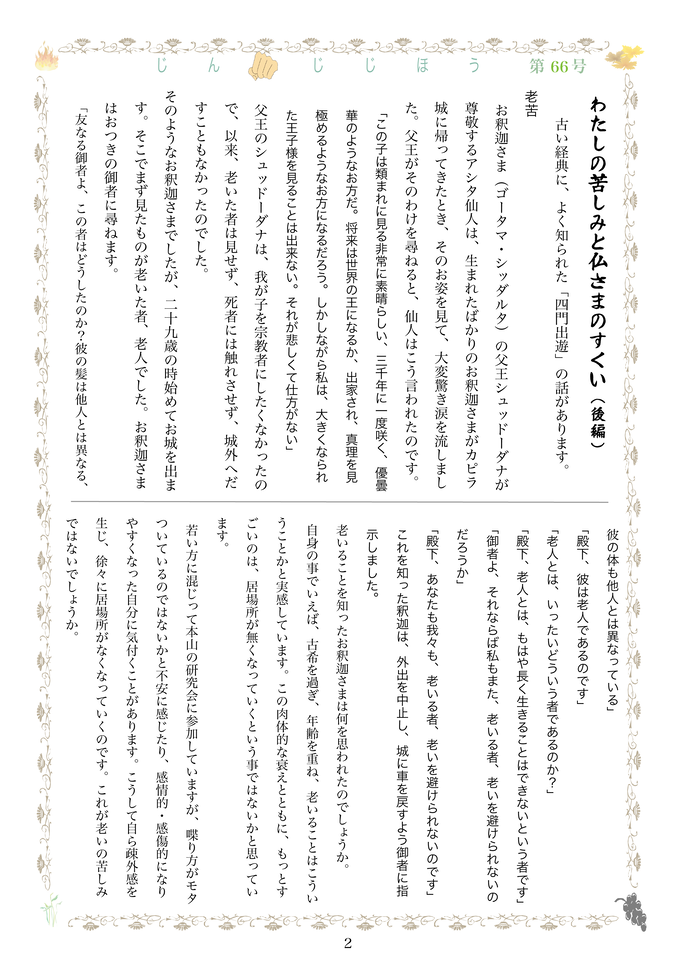 じん じじほう 第66号
わたしの苦しみと仏さまのすくい（後編）
古い経典に、よく知られた「四門出遊」の話があります。
老苦
お釈迦さま（ゴータマ・シッダルタ）の父王シュッドーダナが
尊敬するアシタ仙人は、生まれたばかりのお釈迦さまがカピラ
城に帰ってきたとき、そのお姿を見て、大変驚き涙を流しまし
た。父王がそのわけを尋ねると、仙人はこう言われたのです。
「この子は類まれに見る非常に素晴らしい、三千年に一度咲く、優曇
華のようなお方だ。将来は世界の王になるか、出家され、真理を見
極めるようなお方になるだろう。しかしながら私は、大きくなられ
た王子様を見ることは出来ない。それが悲しくて仕方がない」
父王のシュッドーダナは、我が子を宗教者にしたくなかったの
で、以来、老いた者は見せず、死者には触れさせず、城外へだ
すこともなかったのでした。
そのようなお釈迦さまでしたが、二十九歳の時始めてお城を出ま
す。そこでまず見たものが老いた者、老人でした。お釈迦さま
はおつきの御者に尋ねます。
「友なる御者よ、この者はどうしたのか？彼の髪は他人とは異なる、
彼の体も他人とは異なっている」
「殿下、彼は老人であるのです」
「老人とは、いったいどういう者であるのか？」
「殿下、老人とは、もはや長く生きることはできないという者です」
「御者よ、それならば私もまた、老いる者、老いを避けられないの
だろうか」
「殿下、あなたも我々も、老いる者、老いを避けられないのです」
これを知った釈迦は、外出を中止し、城に車を戻すよう御者に指
示しました。
老いることを知ったお釈迦さまは何を思われたのでしょうか。
自身の事でいえば、古希を過ぎ、年齢を重ね、老いることはこうい
うことかと実感しています。この肉体的な衰えとともに、もっとす
ごいのは、居場所が無くなっていくという事ではないかと思ってい
ます。
若い方に混じって本山の研究会に参加していますが、喋り方がモタ
ついているのではないかと不安に感じたり、感情的・感傷的になり
やすくなった自分に気付くことがあります。こうして自ら疎外感を
生じ、徐々に居場所がなくなっていくのです。これが老いの苦しみ
ではないでしょうか。
2